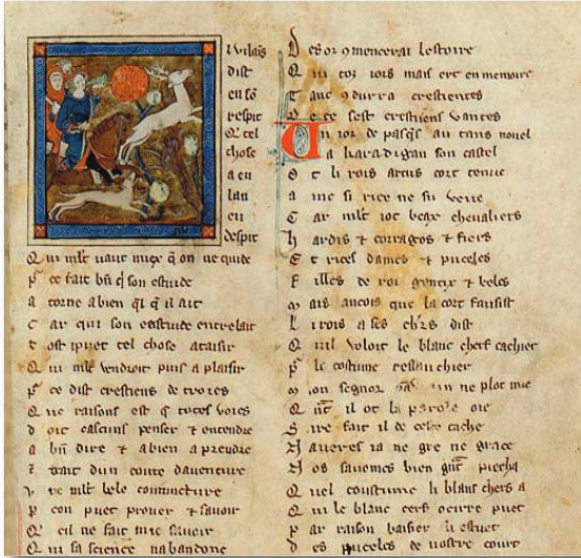 l vilaīs
dist
en sō
respit
Q̄ tel
chose
a en
lan
en
despit
Q ui mlt uaut miex q̄ on ne quide
p̄ ce fait bn̄ q̄ son estuide
a torne a bien ql q̄ il ait
C ar qui son estuide entrelait
t ost i puet tel chose ataisir
Q ui mlt uendroit puis a plaisir
p̄ ce dist crestiens de troies
Q ue raisons est q̄ totes voies
d oit cascuns penser ⁊ entendre
a bn̄ dire ⁊ a bien aprendre
⁊ trait dun conte dauenture
v ne mlt bele coniuncture
p con puet prouer ⁊ sauoir
Q' cil ne fait mie sauoir
Q ui sa science nabandone
D es or 9mencerai lestoire
Q ui toz iors mais ert en memoire
T anc 9 durra crestientes
D e ce sest crestiens vantes
U n ior de pasq̄s au tans nouel
a karadigan son castel
O t li rois artus cort tenue
a inc si rice ne fu veue
C ar mlt iot beax cheualiers
h ardis ⁊ corragos ⁊ fiers
E t rices dames ⁊ puceles
F illes de roi gentix ⁊ beles
M ais ancois que la cort fausist
L i rois a ses ch'rs dist
Q uil voloit le blanc cherf cachier
p̄ le costume restauchier
M on segnor ne plot mie
Q nt̄ il ot la parole oie
S ire fait il de ceste cache
N aueres ia ne gre ne grace
N os sauomes bien gnt̄ piecha
Q uel coustume li blans chers a
Q ui le blanc cerf ocirre puet
p ar raison baisier li estuet
D es puceles de uostre court